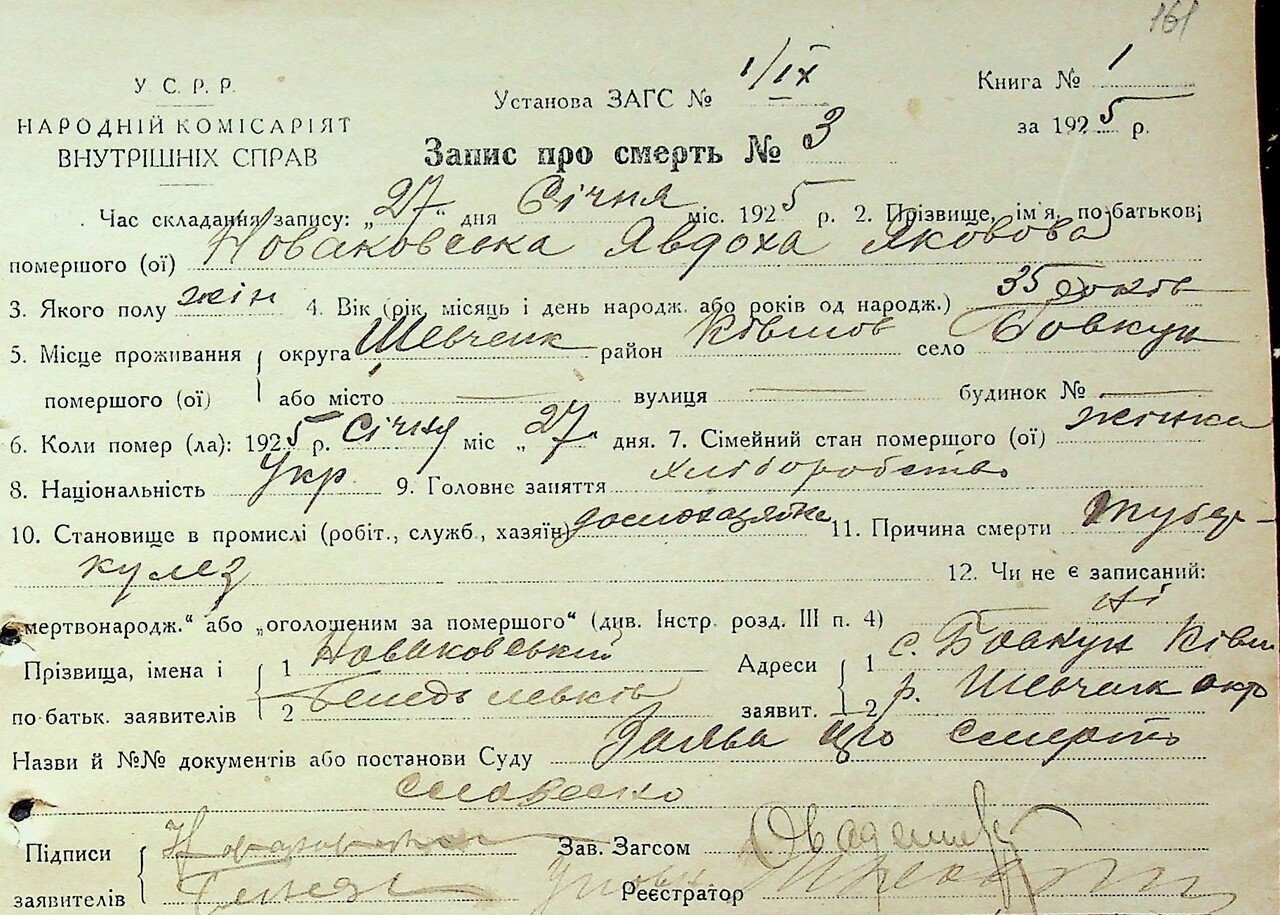 161
У С. Р. Р.
НАРОДНІЙ КОМІСАРІЯТ
ВНУТРІШНІХ СПРАВ
Установа ЗАГС № 1/IX
Книга № 1
за 1925 р.
Запис про смерть № 3
Час складання запису: „27“ дня Січня міс. 1925 р. 2. Прізвище, ім'я, по-батькові
помершого (ої) Новаковська Явдоха Яковова
3. Якого полу жін 4. Вік (рік, місяць і день народж. або років од народж.) 35 років
5. Місце проживання округа Шевченк район Ківшов село Бовкун
помершого (ої) або місто — вулиця — будинок № —
6. Коли помер (ла): 1925 р. Січня міс „27“ дня. 7. Сімейний стан помершого (ої) жінка
8. Національність Укр. 9. Головне заняття хліборобство
10. Становище в промислі (робіт., служб., хазяїн) 11. Причина смерти Тубер-
кулез 12. Чи не є записаний:
„мертвонародж.“ або „оголошеним за помершого“ (див. Інстр. розд. III п. 4) ні
Прізвища, імена і 1 Новаковський Адреси 1 с. Бовкун Ківш
по-батьк. заявителів 2 Левків заявит. 2 р. Шевченк окр
Назви й №№ документів або постанови Суду Заява про смерть
словесно
Підписи Зав. Загсом
заявителів Реєстратор